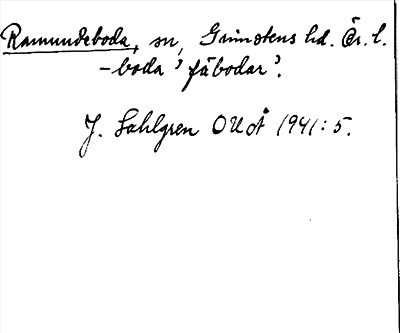 Ramundeboda, sn, Grimstens hd. Ör. l.
-boda 'fäbodar'.
J. Sahlgren OUÅ 1941: 5.